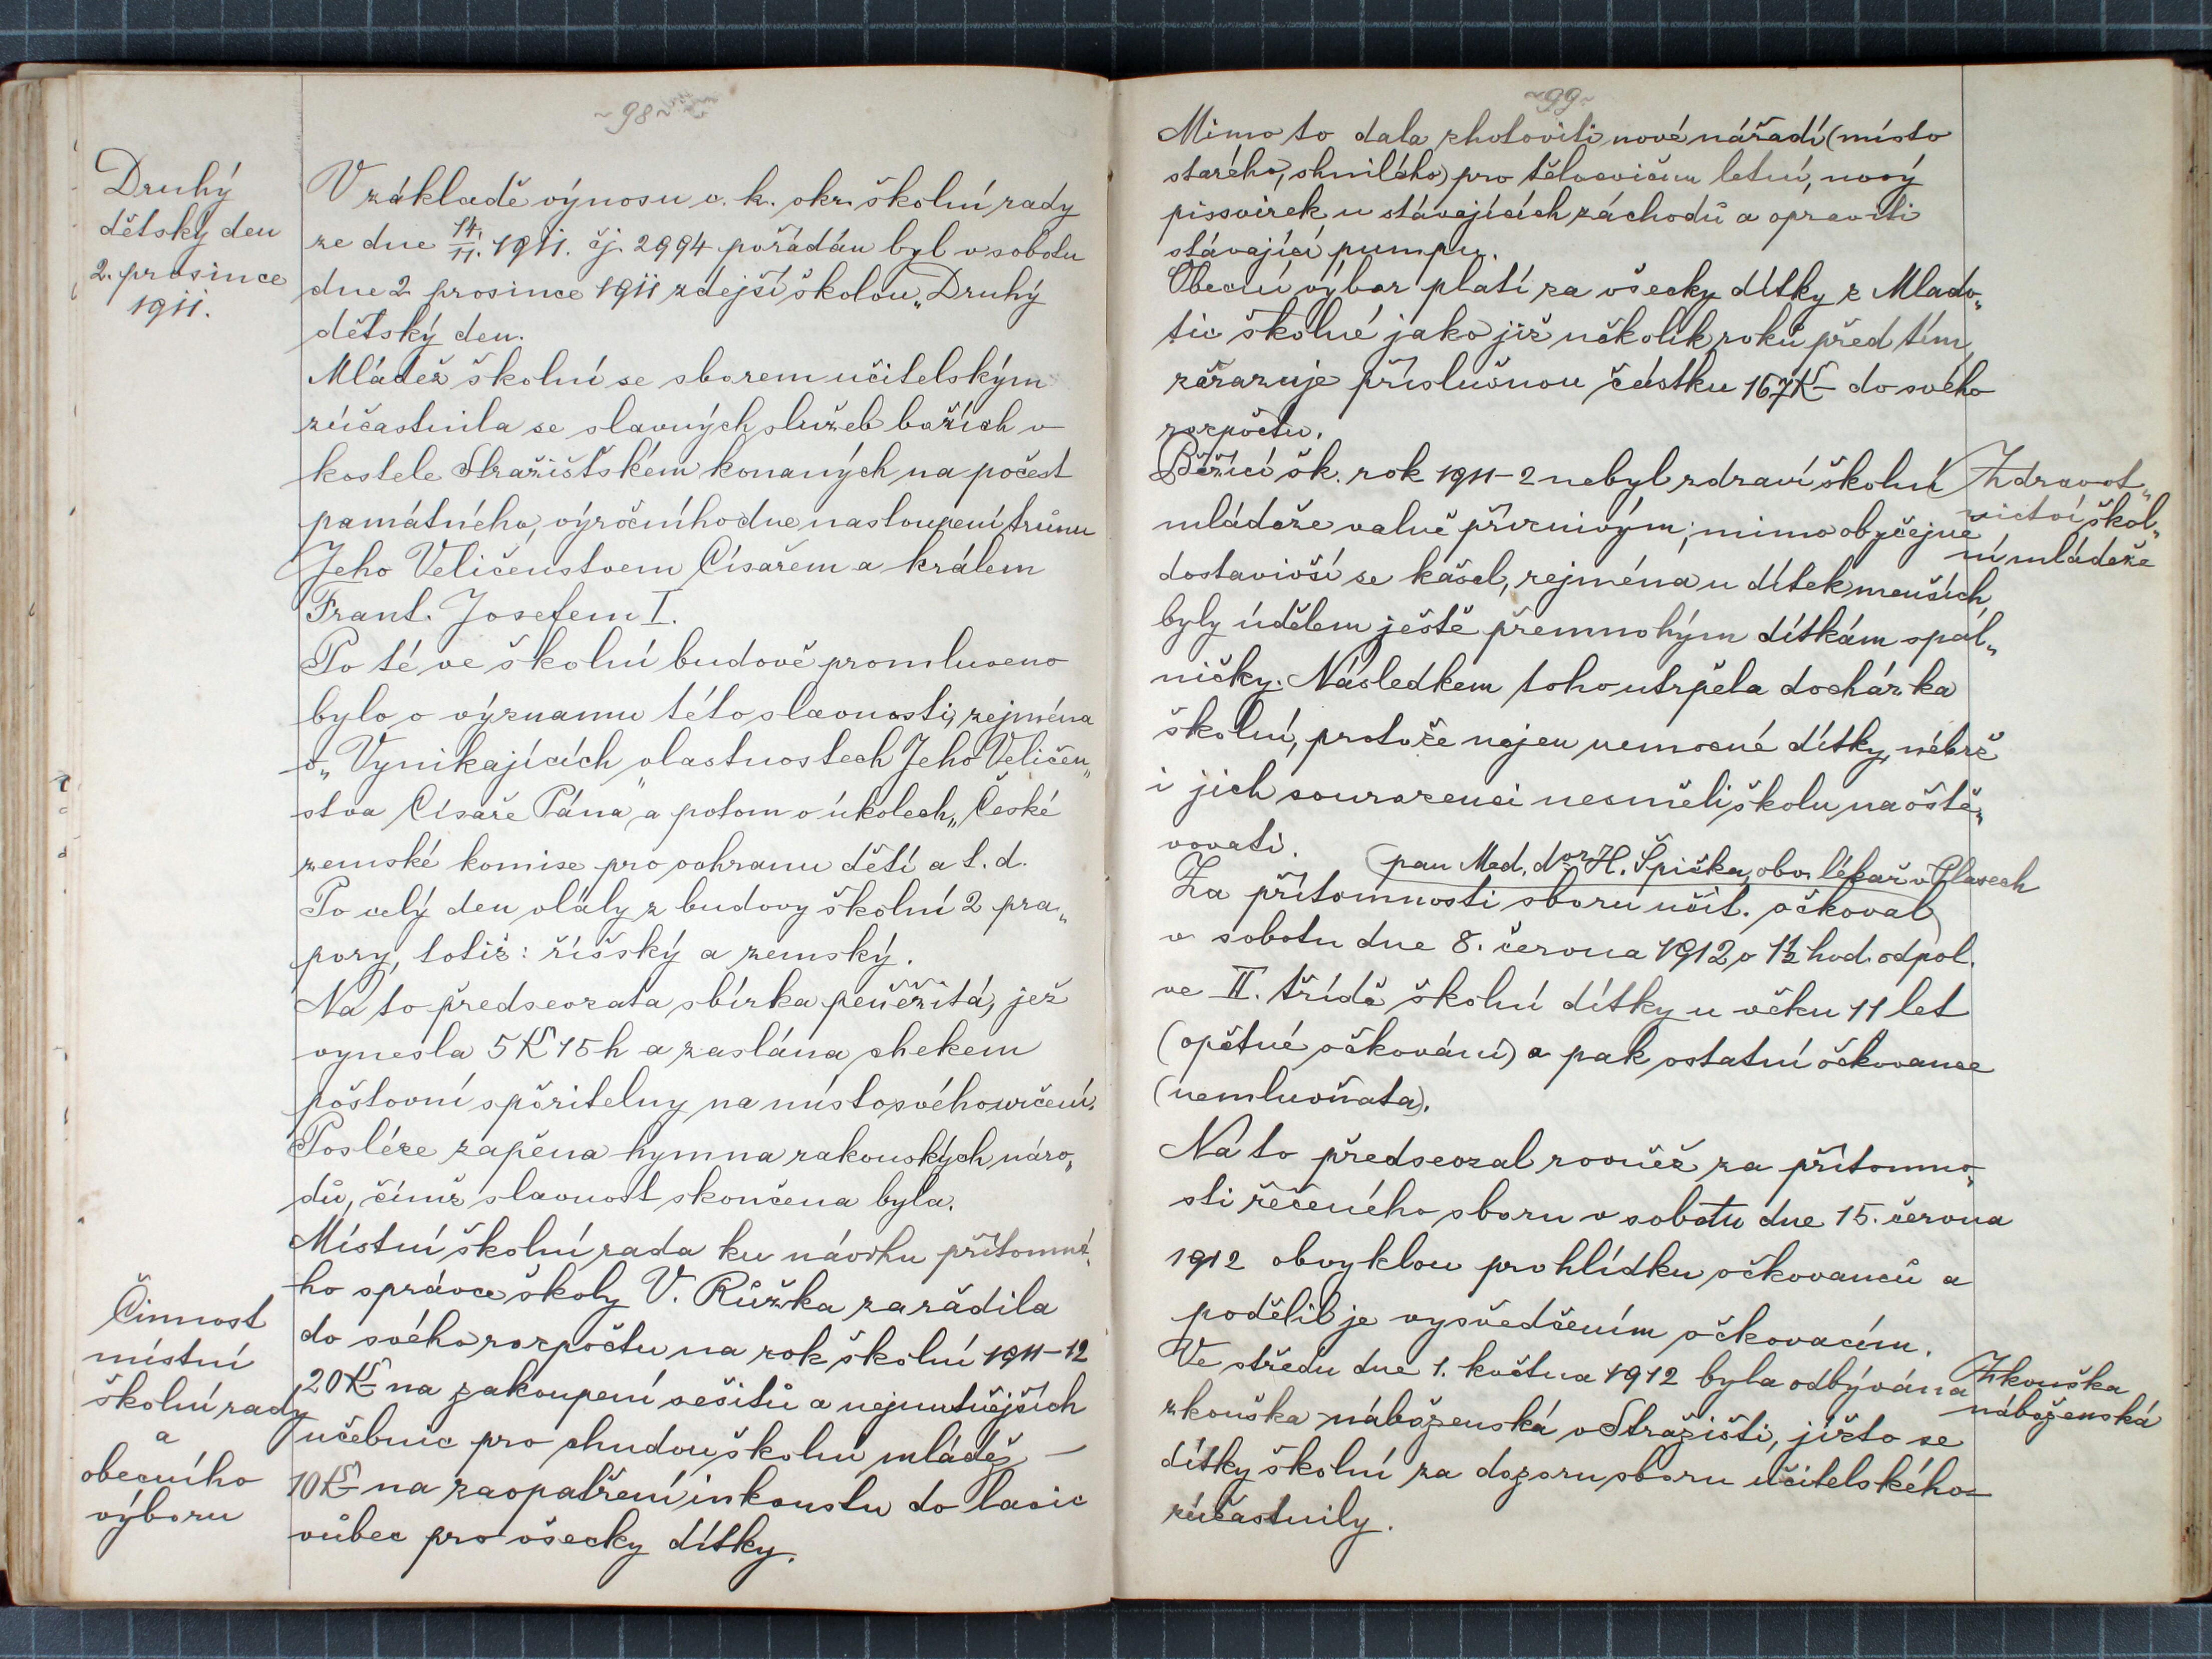 ~98~
Druhý
dětský den
2. prosince
1911.
V základě výnosu c. k. okr. školní rady
ze dne 14./11. 1911. čj. 2994 pořádán byl v sobotu
dne 2 prosince 1911 zdejší školou „Druhý
dětský den.
Mládež školní se sborem učitelským
zúčastnila se slavných služeb božích v
kostele Stražištském konaných na počest
památného, výročního dne nastoupení trůnu
Jeho Veličenstvem Císařem a králem
Frant. Josefem I.
Po té ve školní budově promluveno
bylo o významu této slavnosti, zejména
o „Vynikajících vlastnostech Jeho Veličen„
stva Císaře Pána" a potom o úkolech „České
zemské komise pro ochranu dětí a t. d.
Po celý den vlály z budovy školní 2 pra„
pory, totiž: říšský a zemský.
Na to předsevzata sbírka peněžitá, jež
vynesla 5 K 15 h a zaslána chekem
poštovní spořitelny na místo svého určení.
Posléze zapěna hymna rakouských náro„
dů, čímž slavnost skončena byla.
Místní školní rada ku návrhu přítomné„
ho správce školy V. Růžka zařadila
do svého rozpočtu na rok školní 1911-12
20 K na zakoupení sešitů a nejnutnějších
učebnic pro chudou školní mládež –
10 K na zaopatření inkoustu do lavic
vůbec pro všecky dítky.
Činnost
místní
školní rady
a
obecního
výboru
~99~
Mimo to dala zhotoviti nové nářadí (místo
starého, shnilého) pro tělocvičnu letní, nový
pissoirek u stávajících záchodů a opraviti
stávající pumpu.
Obecní výbor platí za všecky dítky z Mlado„
tic školné jako již několik roků před tím,
zařazuje příslušnou částku 167 K do svého
rozpočtu.
Běžící šk. rok 1911-2 nebyl zdraví školní
mládeže valně příznivým; mimo obyčejně
dostavivší se kašel, zejména u dítek menších
byly údělem ještě přemnohým dítkám spal„
ničky. Následkem toho utrpěla docházka
školní, protože nejen nemocné dítky, nébrž
i jich sourozenci nesměli školu navště„
vovati.
Zdravot„
nictví škol„
ní mládeže
pan Med. dor H. Špička, obv. lékař v Plasech
Za přítomnosti sboru učit. očkoval
v sobotu dne 8. června 1912 o ½ hod. odpol.
ve II. třídě školní dítky u věku 11 let
(opětné očkování) a pak ostatní očkovance
(nemluvňata).
Na to předsevzal rovněž za přítomno„
sti řečeného sboru v sobotu dne 15. června
1912 obvyklou prohlídku očkovanců a
podělil je vysvědčením očkovacím.
Ve středu dne 1. května 1912 byla odbývána
zkouška náboženská v Stražišti, jížto se
dítky školní za dozoru sboru učitelského
zúčastnily.
Zkouška
náboženská